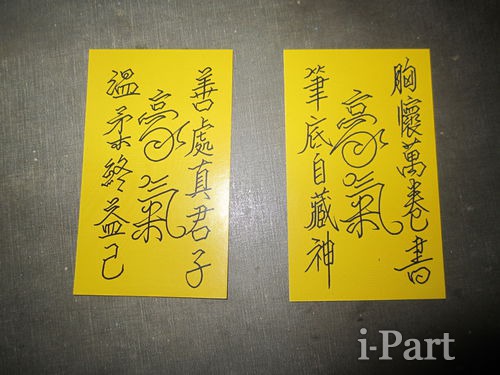 善處真君子
豪氣
溫柔終益己
胸懷萬卷書
豪氣
筆底自藏神
i-Part